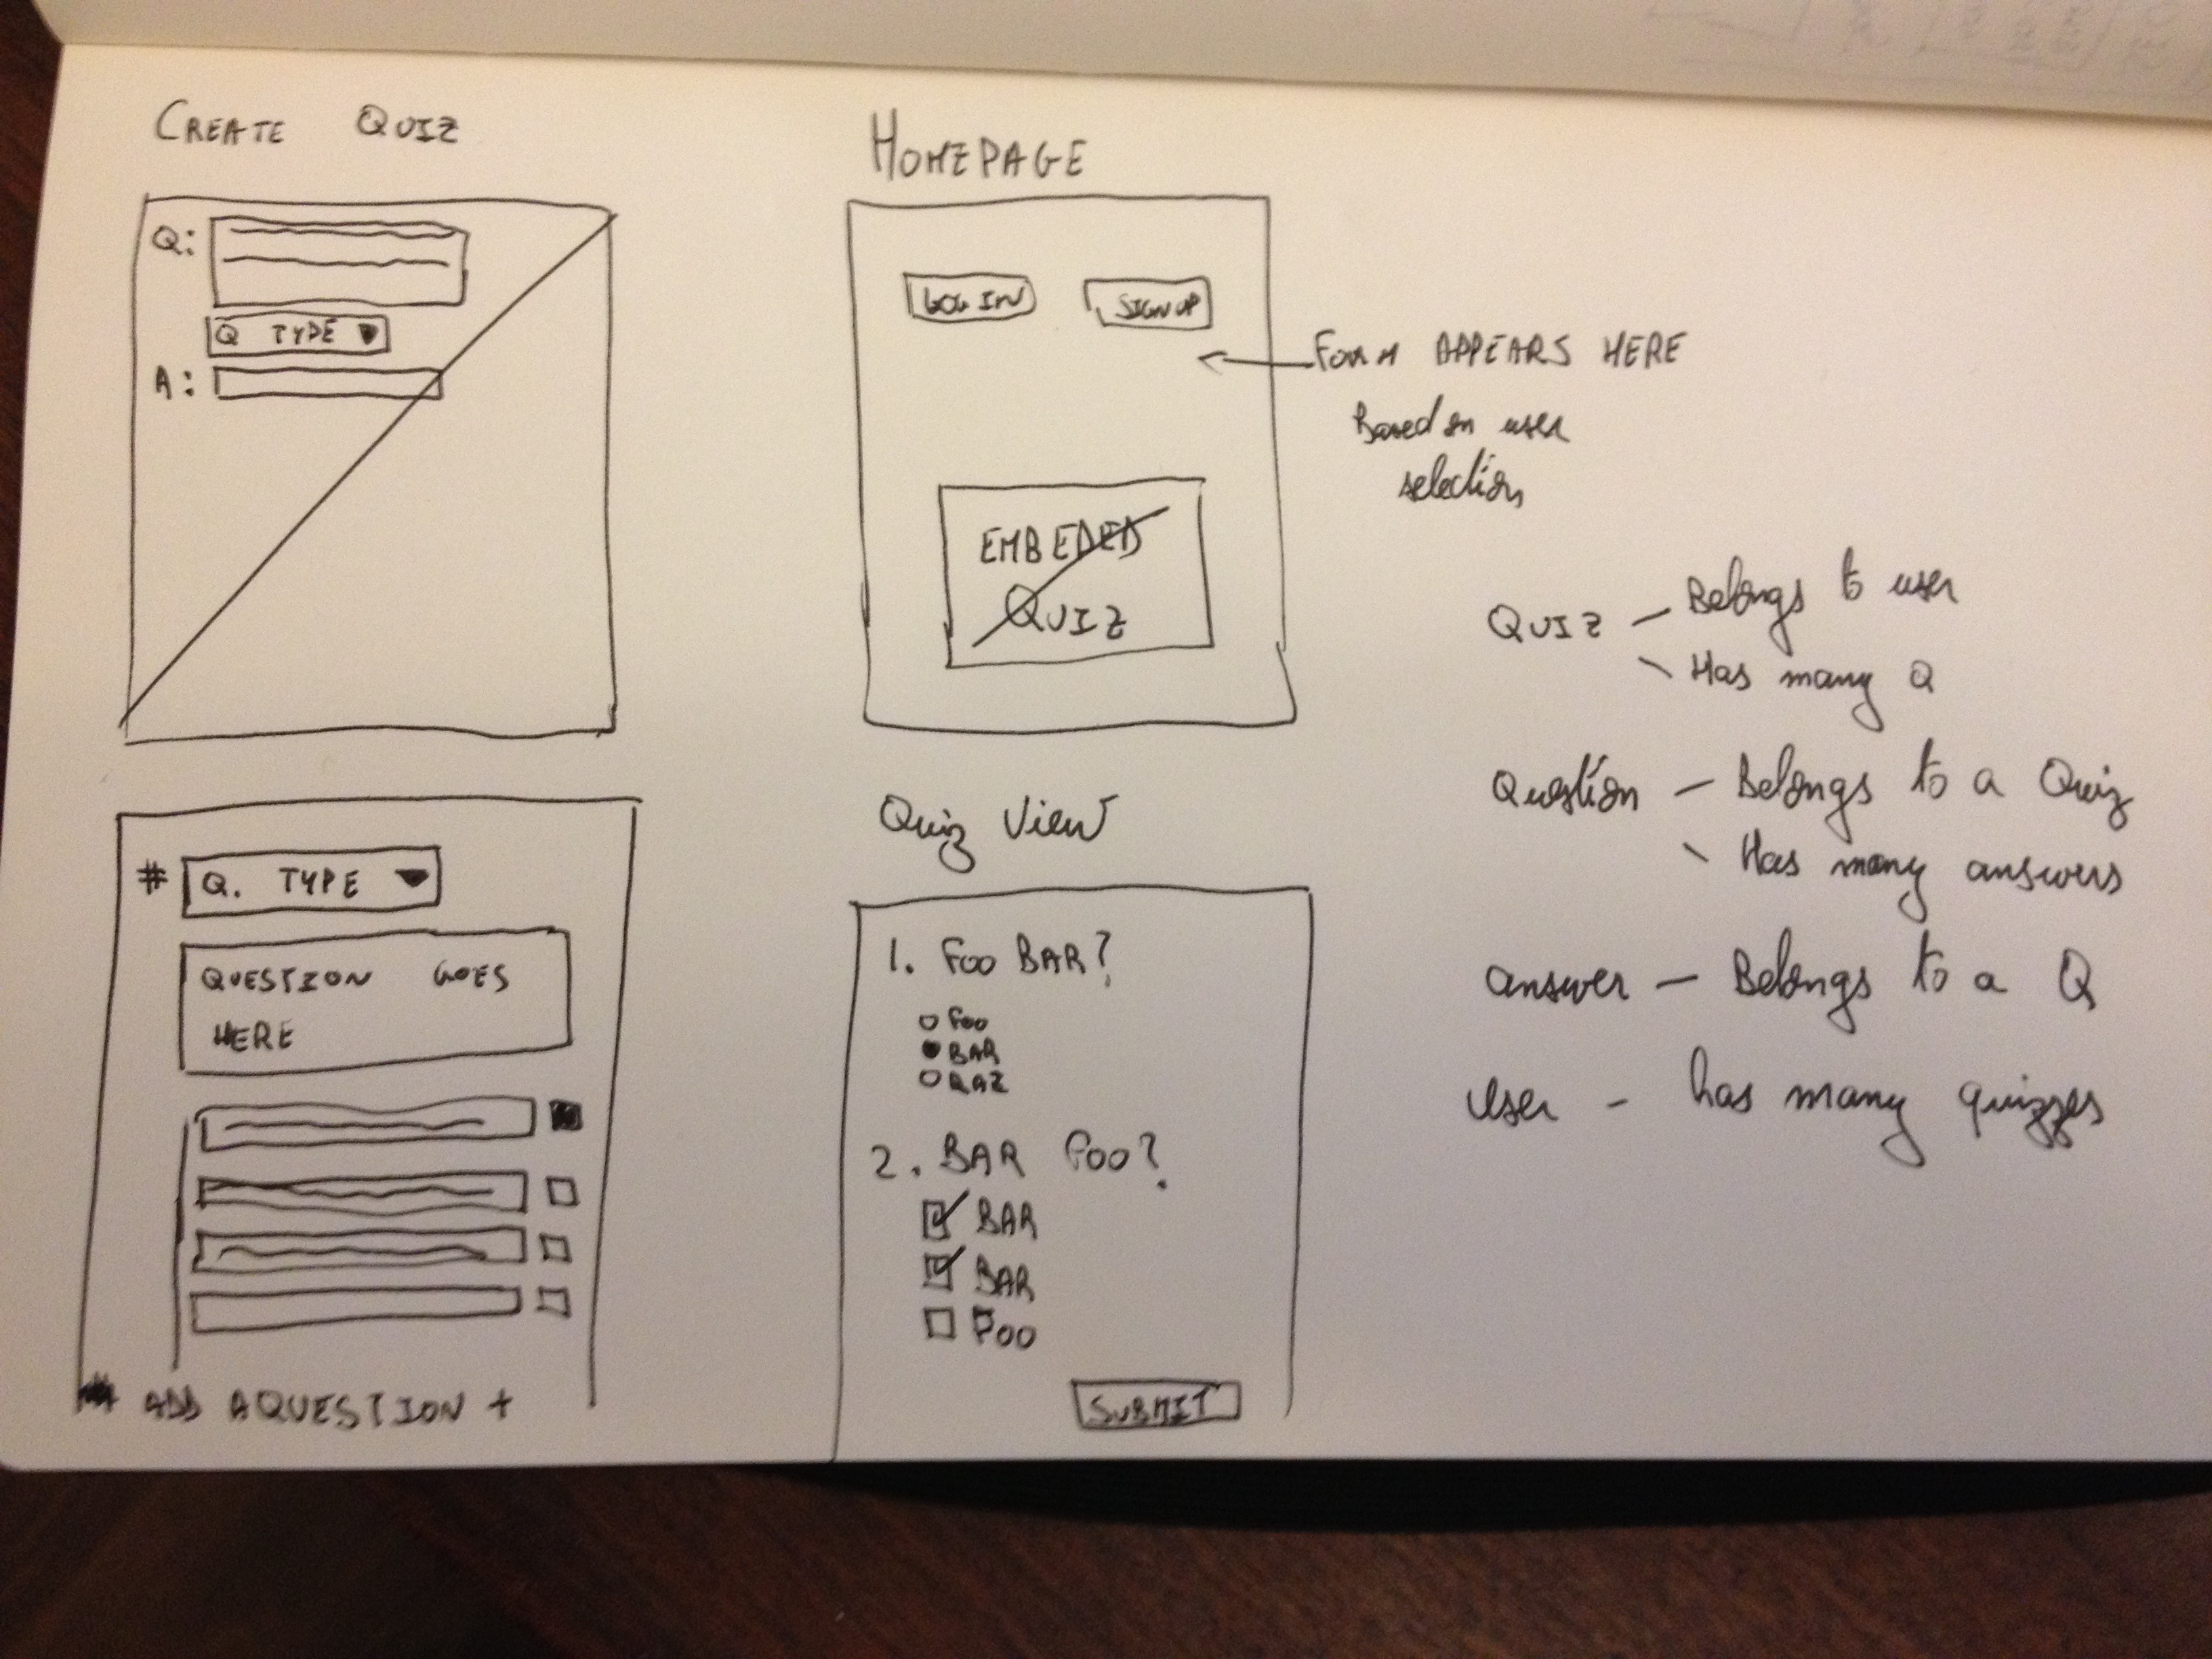 CREATE QUIZ
Q:
Q TYPE
A:
# Q. TYPE
QUESTION GOES
HERE
ADD A QUESTION +
HOMEPAGE
LOG IN
SIGN UP
FORM APPEARS HERE
Based on user
selection
EMBEDED
QUIZ
Quiz View
1. FOO BAR?
FOO
BAR
BAZ
2. BAR FOO?
BAR
BAR
FOO
SUBMIT
QUIZ - Belongs to user
- Has many Q
Question - Belongs to a Quiz
- Has many answers
answer - Belongs to a Q
User - has many quizzes